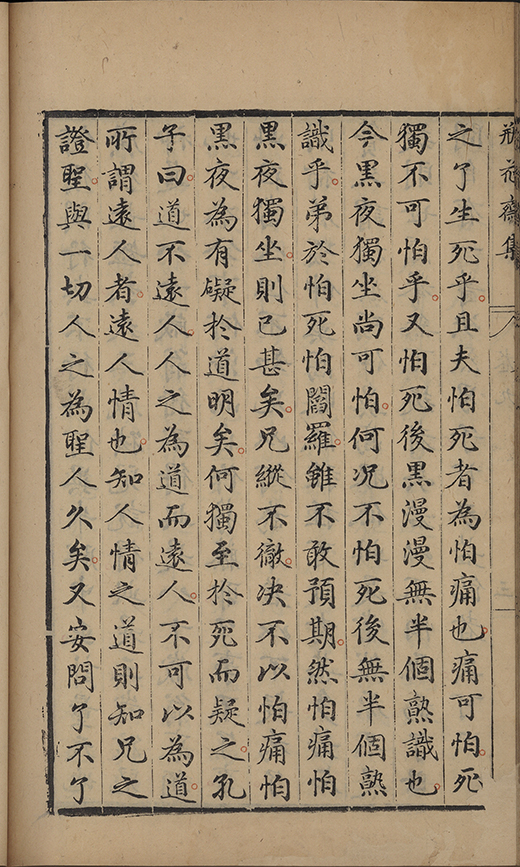 瓶花齋集
之了生死乎且夫怕死者為怕痛也痛可怕死
獨不可怕乎又怕死後黑漫漫無半個熟識也
今黑夜獨坐尚可怕何況不怕死後無半個熟
識乎弟於怕死怕閻羅雖不敢預期然怕痛怕
黑夜獨坐則已甚矣兄縱不徹决不以怕痛怕
黑夜為有礙於道明矣何獨至於死而疑之孔
子曰道不遠人人之為道而遠人不可以為道
所謂遠人者遠人情也知人情之道則知兄之
證聖與一切人之為聖人久矣又安問了不了